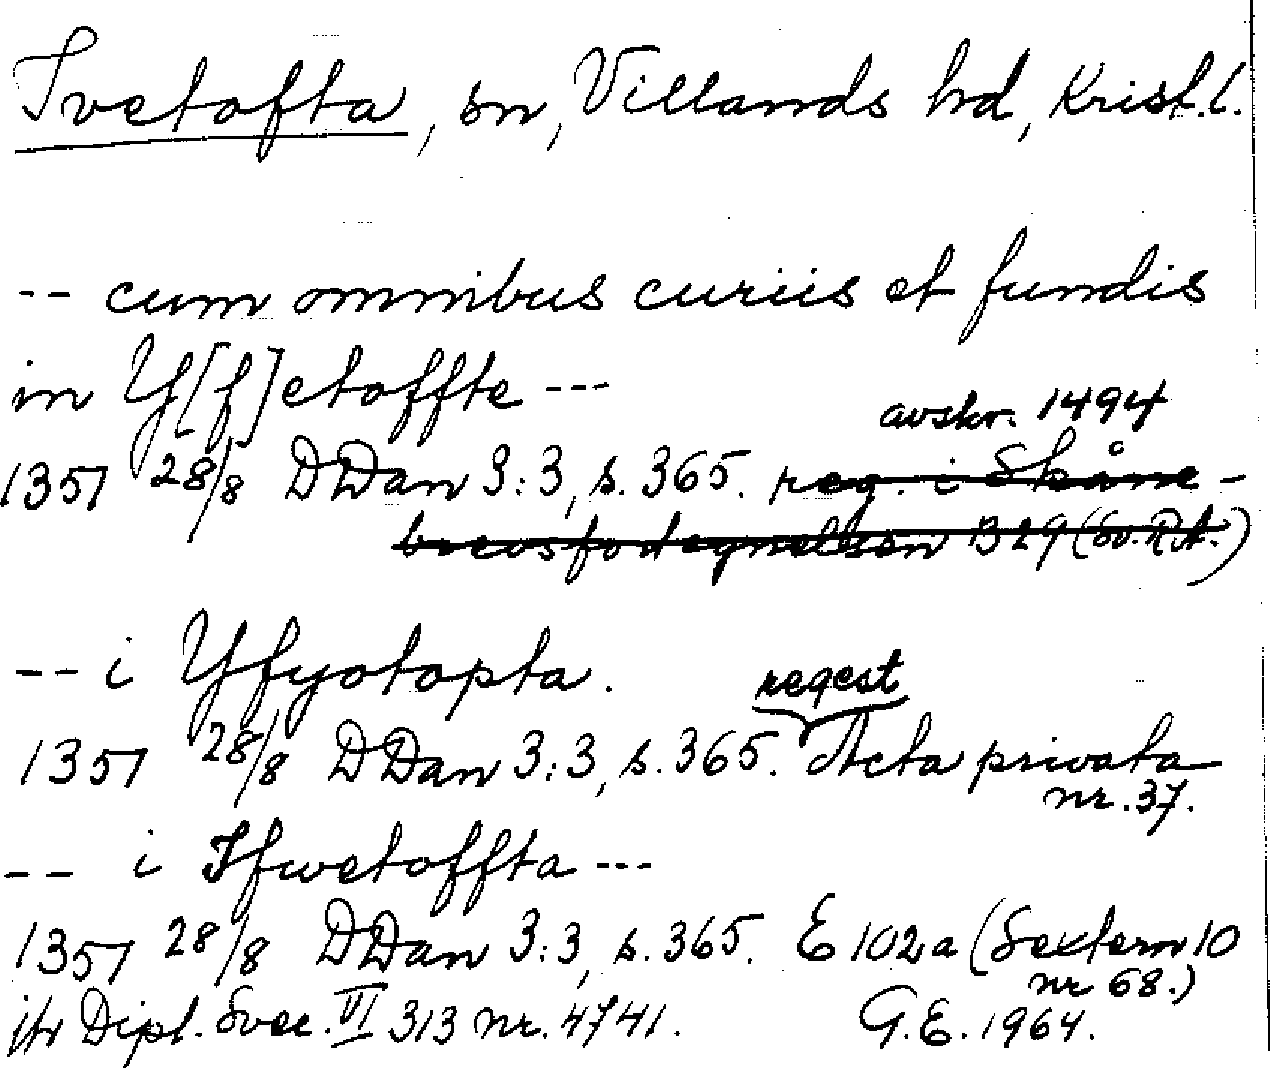 Ivetofta, sn, Villands hd, Krist.l.
-- cum omnibus curiis et fundis
in Y[f]etoffte ---
avskr. 1494
1357 28/8 DDan 3:3, s. 365. reg. i Skåne-
brevsfortegnelsen B 29 (Sv. RA.)
-- i Yfyotopta.
regest
1357 28/8 DDan 3:3, s. 365. Acta privata
nr. 37.
-- i Ifwetoffta ---
1357 28/8 DDan 3:3, s. 365. E 102a (Sextern 10
nr 68.)
jfr Dipl. Svec. VI 313 nr. 4741. G.E. 1964.